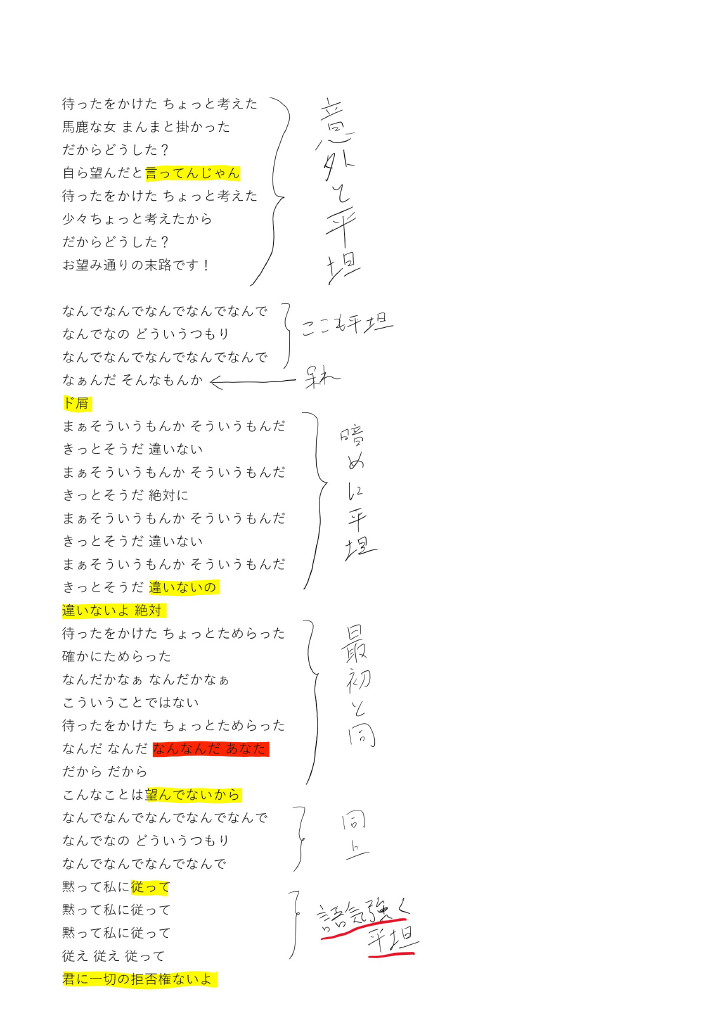 待ったをかけた ちょっと考えた
馬鹿な女 まんまと掛かった
だからどうした？
自ら望んだと言ってんじゃん
待ったをかけた ちょっと考えた
少々ちょっと考えたから
だからどうした？
お望み通りの末路です！
意外と平坦
なんでなんでなんでなんでなんで
なんでなの どういうつもり
なんでなんでなんでなんでなんで
ここも平坦
なぁんだ そんなもんか
呆れ
ド屑
まぁそういうもんか そういうもんだ
きっとそうだ 違いない
まぁそういうもんか そういうもんだ
きっとそうだ 絶対に
まぁそういうもんか そういうもんだ
きっとそうだ 違いない
まぁそういうもんか そういうもんだ
きっとそうだ 違いないの
暗めに平坦
違いないよ 絶対
待ったをかけた ちょっとためらった
確かにためらった
なんだかなぁ なんだかなぁ
こういうことではない
待ったをかけた ちょっとためらった
なんだ なんだ なんなんだ あなた
だから だから
こんなことは望んでないから
最初と同
なんでなんでなんでなんでなんで
なんでなの どういうつもり
なんでなんでなんでなんで
同上
黙って私に従って
黙って私に従って
黙って私に従って
従え 従え 従って
語気強く
平坦
君に一切の拒否権ないよ